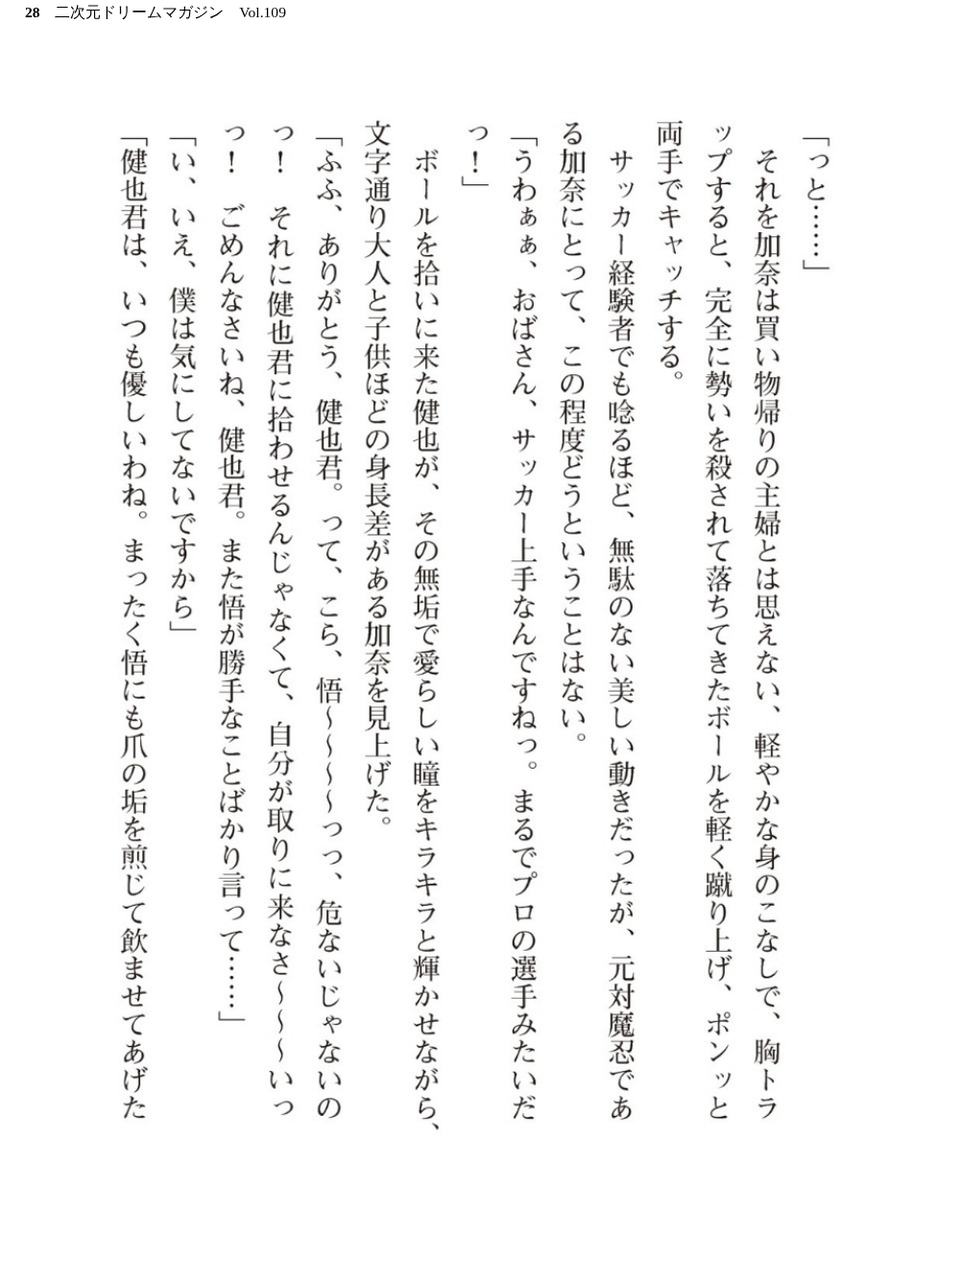 28 二次元ドリームマガジン Vol.109
「っと……」
　それを加奈は買い物帰りの主婦とは思えない、軽やかな身のこなしで、胸トラ
ップすると、完全に勢いを殺されて落ちてきたボールを軽く蹴り上げ、ポンッと
両手でキャッチする。
　サッカー経験者でも唸るほど、無駄のない美しい動きだったが、元対魔忍であ
る加奈にとって、この程度どうということはない。
「うわぁぁ、おばさん、サッカー上手なんですねっ。まるでプロの選手みたいだ
っ！」
　ボールを拾いに来た健也が、その無垢で愛らしい瞳をキラキラと輝かせながら、
文字通り大人と子供ほどの身長差がある加奈を見上げた。
「ふふ、ありがとう、健也君。って、こら、悟～～～～っっ、危ないじゃないの
っ！　それに健也君に拾わせるんじゃなくて、自分が取りに来なさ～～～いっ
っ！　ごめんなさいね、健也君。また悟が勝手なことばかり言って……」
「い、いえ、僕は気にしてないですから」
「健也君は、いつも優しいわね。まったく悟にも爪の垢を煎じて飲ませてあげた